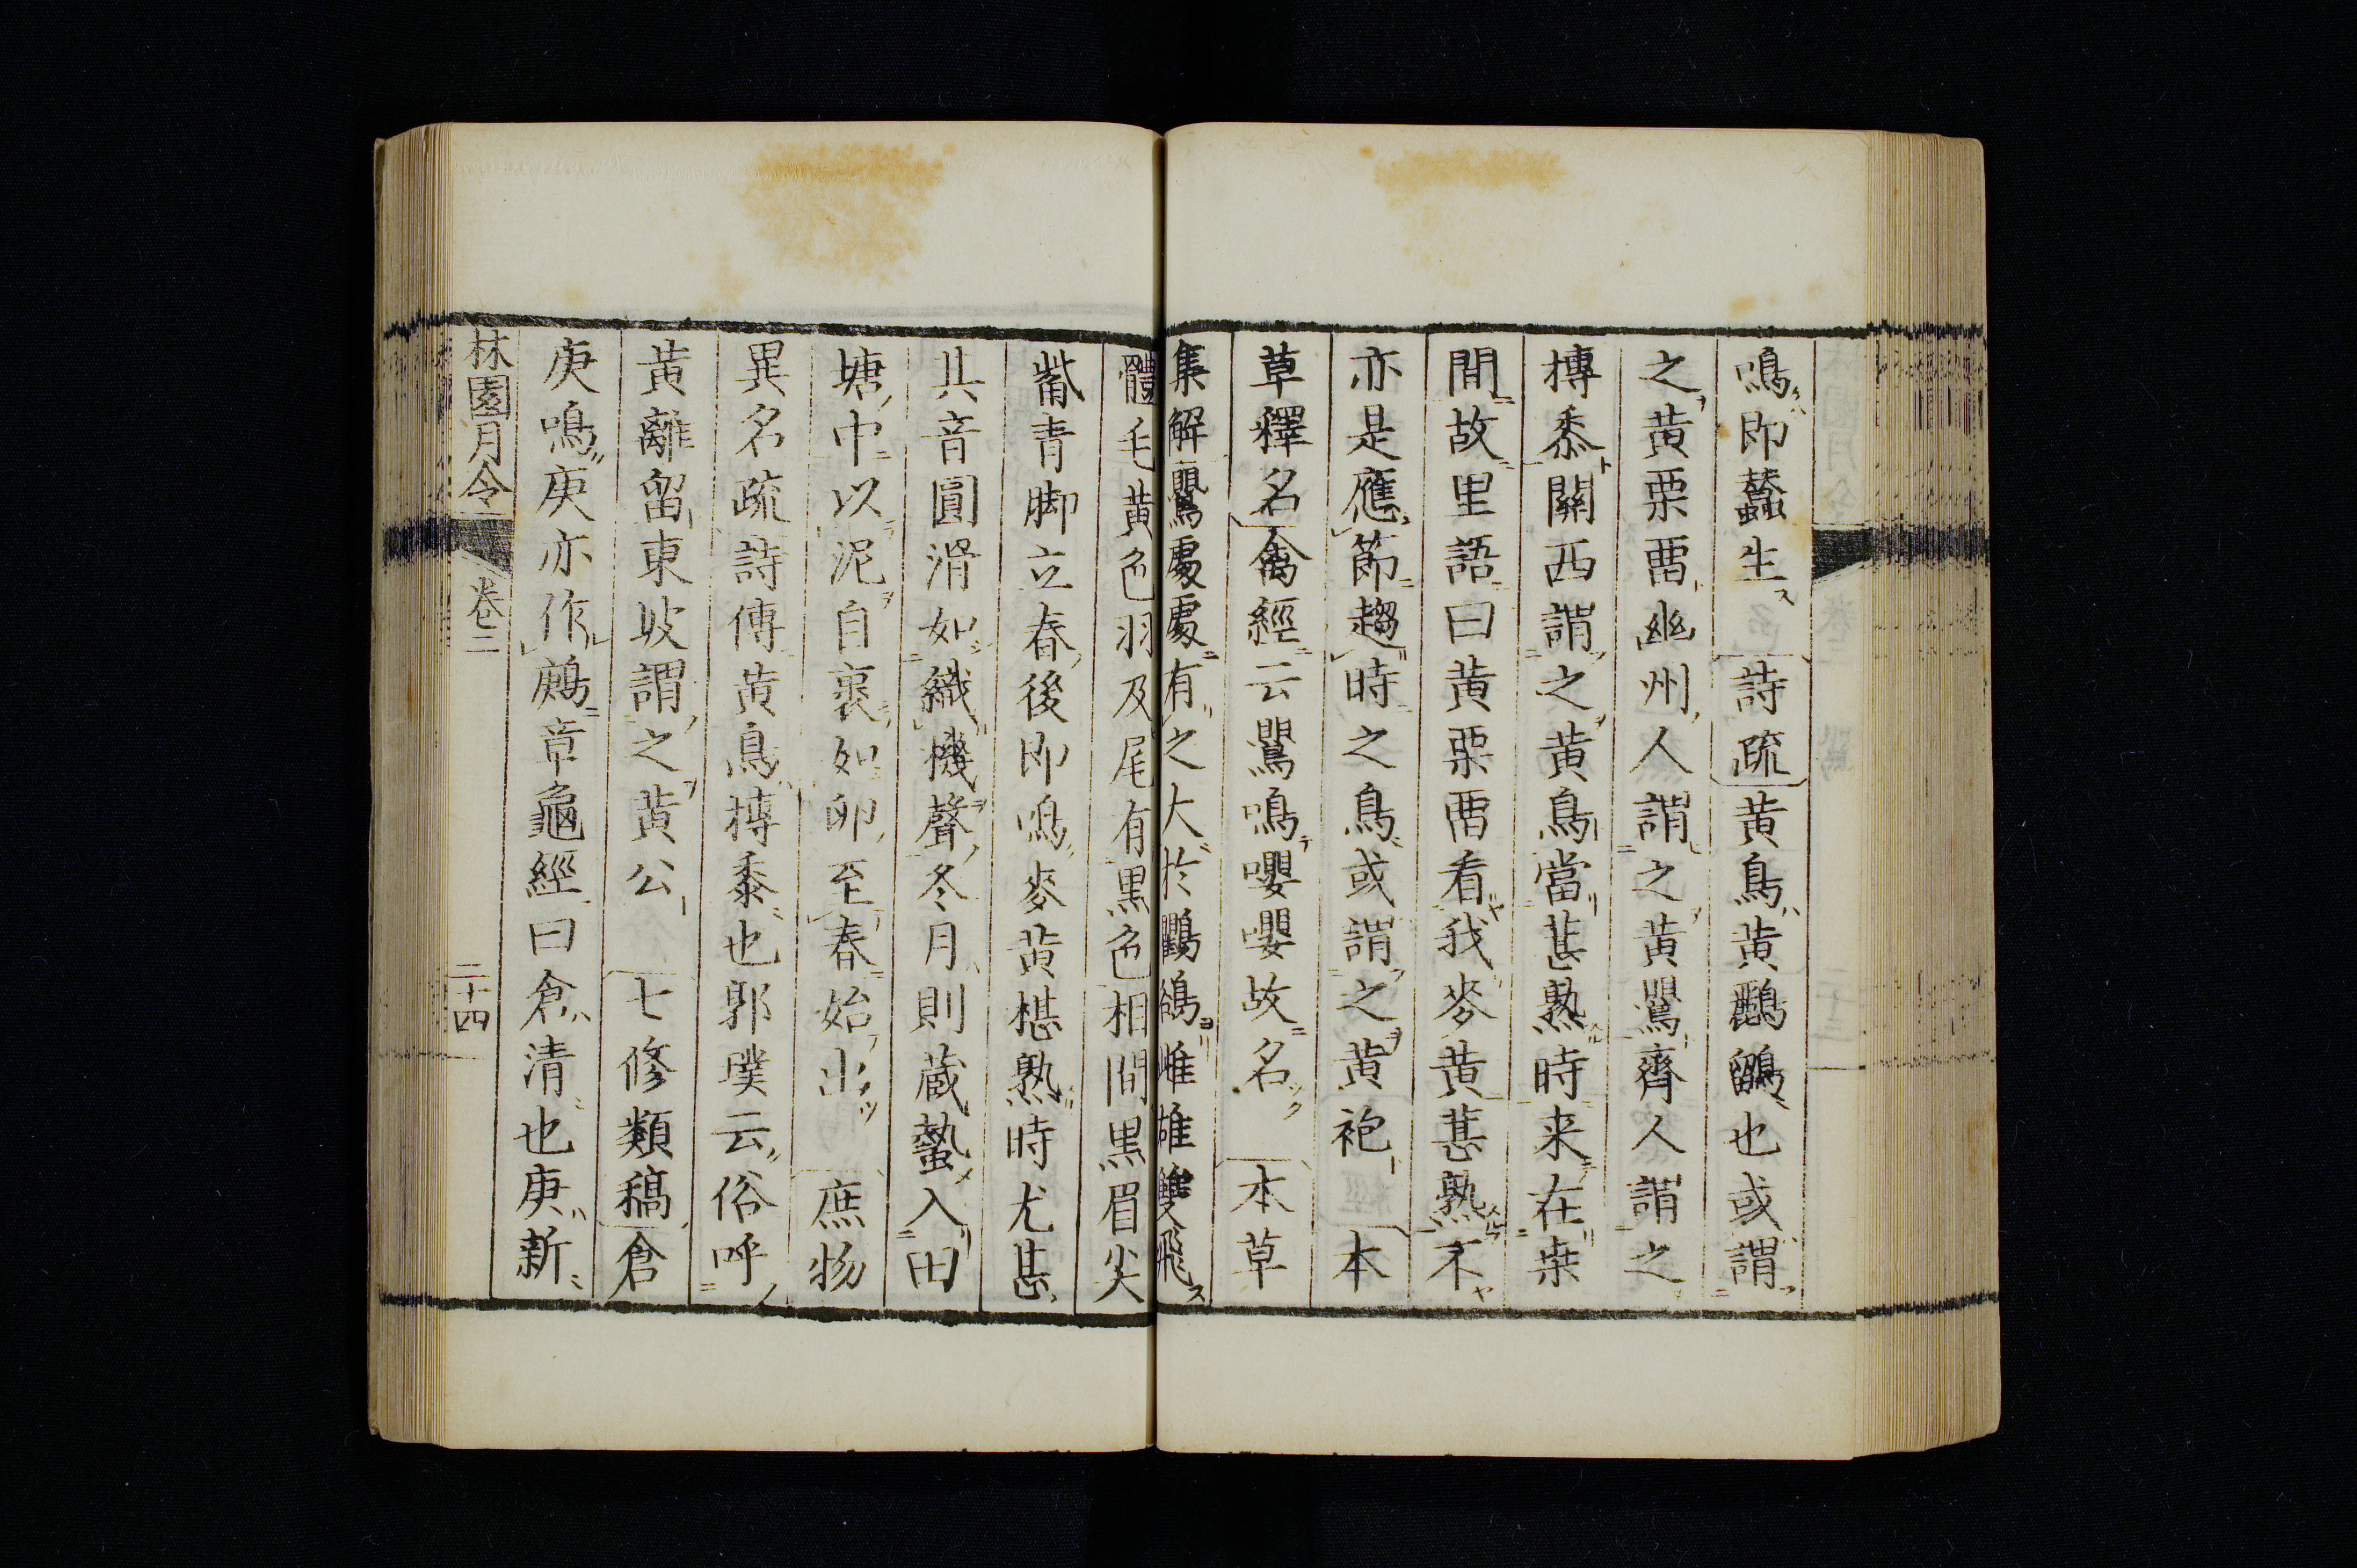 鳴即蠶生詩疏黄鳥黄鸝鶹也或謂
之黄栗畱幽州人謂之黄鸎齊人謂之
摶黍關西謂之黄鳥當葚熟時来在桒
間故里語曰黄栗畱看我麥黄葚熟不
亦是應節趨時之鳥或謂之黄袍本
草釋名禽經云鸎鳴嚶嚶故名本草
集解鸎處處有之大於鸜鵒雌雄雙飛
體毛黄色羽及尾有黒色相間黒眉尖
觜青脚立春後即鳴麥黄椹熟時尤甚
其音圓滑如織機聲冬月則蔵蟄入田
塘中以泥自裹如卵至春始出庶物
異名疏詩傳黄鳥摶黍也郭璞云俗呼
黄離留東坡謂之黄公七修類稿倉
庚鳴庚亦作鶊章龜經曰倉清也庚新
林園月令
卷三
二十四